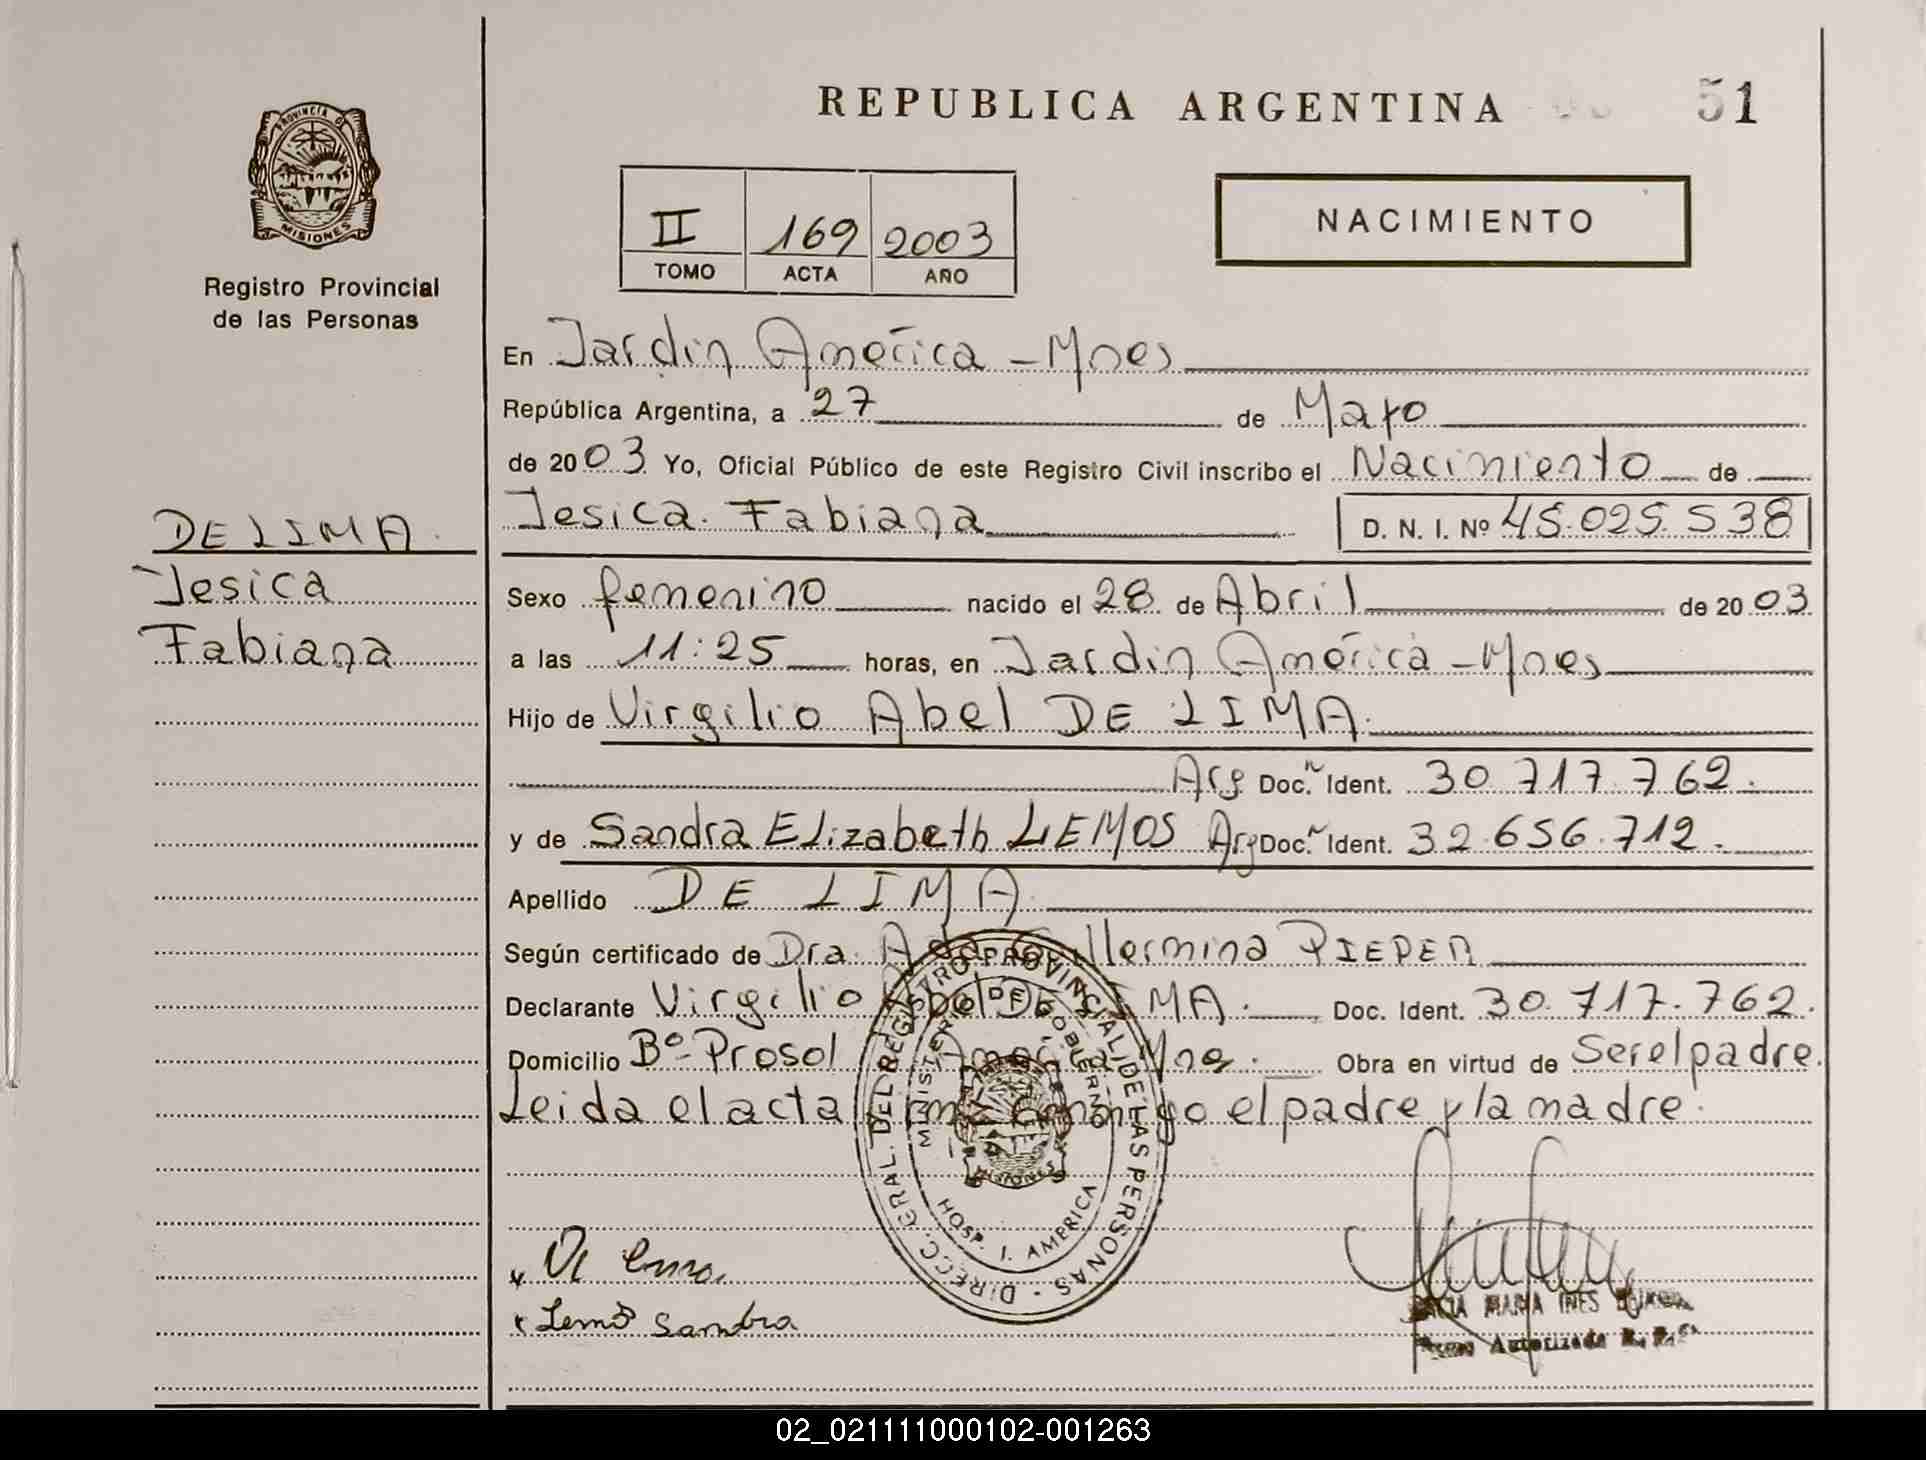 REPUBLICA ARGENTINA
51
PROVINCIA DE
MISIONES
Registro Provincial
de las Personas
II 169 2003
TOMO ACTA AÑO
NACIMIENTO
En Jardin América - Mnes
República Argentina, a 27 de Mayo
de 2003 Yo, Oficial Público de este Registro Civil inscribo el Nacimiento de
Jesica Fabiana D. N. I. Nº 45.025.538
DE LIMA.
Jesica
Fabiana
Sexo femenino nacido el 28 de Abril de 2003
a las 11:25 horas, en Jardin América - Mnes
Hijo de Virgilio Abel DE LIMA.
Arg Doc. N Ident. 30.717.762.
y de Sandra ELizabeth LEMOS Arg Doc. N Ident. 32.656.712.
Apellido DE LIMA
Según certificado de Dra. PIEPER
Declarante Virgilio Abel De LIMA. Doc. Ident. 30.717.762.
Domicilio Bº- Prosol Obra en virtud de Ser el padre.
Leida el acta el padre y la madre.
DIRECC. GRAL. DEL REGISTRO PROVINCIAL DE LAS PERSONAS
MINISTERIO DE GOBIERNO
HOSP. J. AMERICA
MISIONES
Lemos Sandra
MARIA INES
Autorizada
02_021111000102-001263